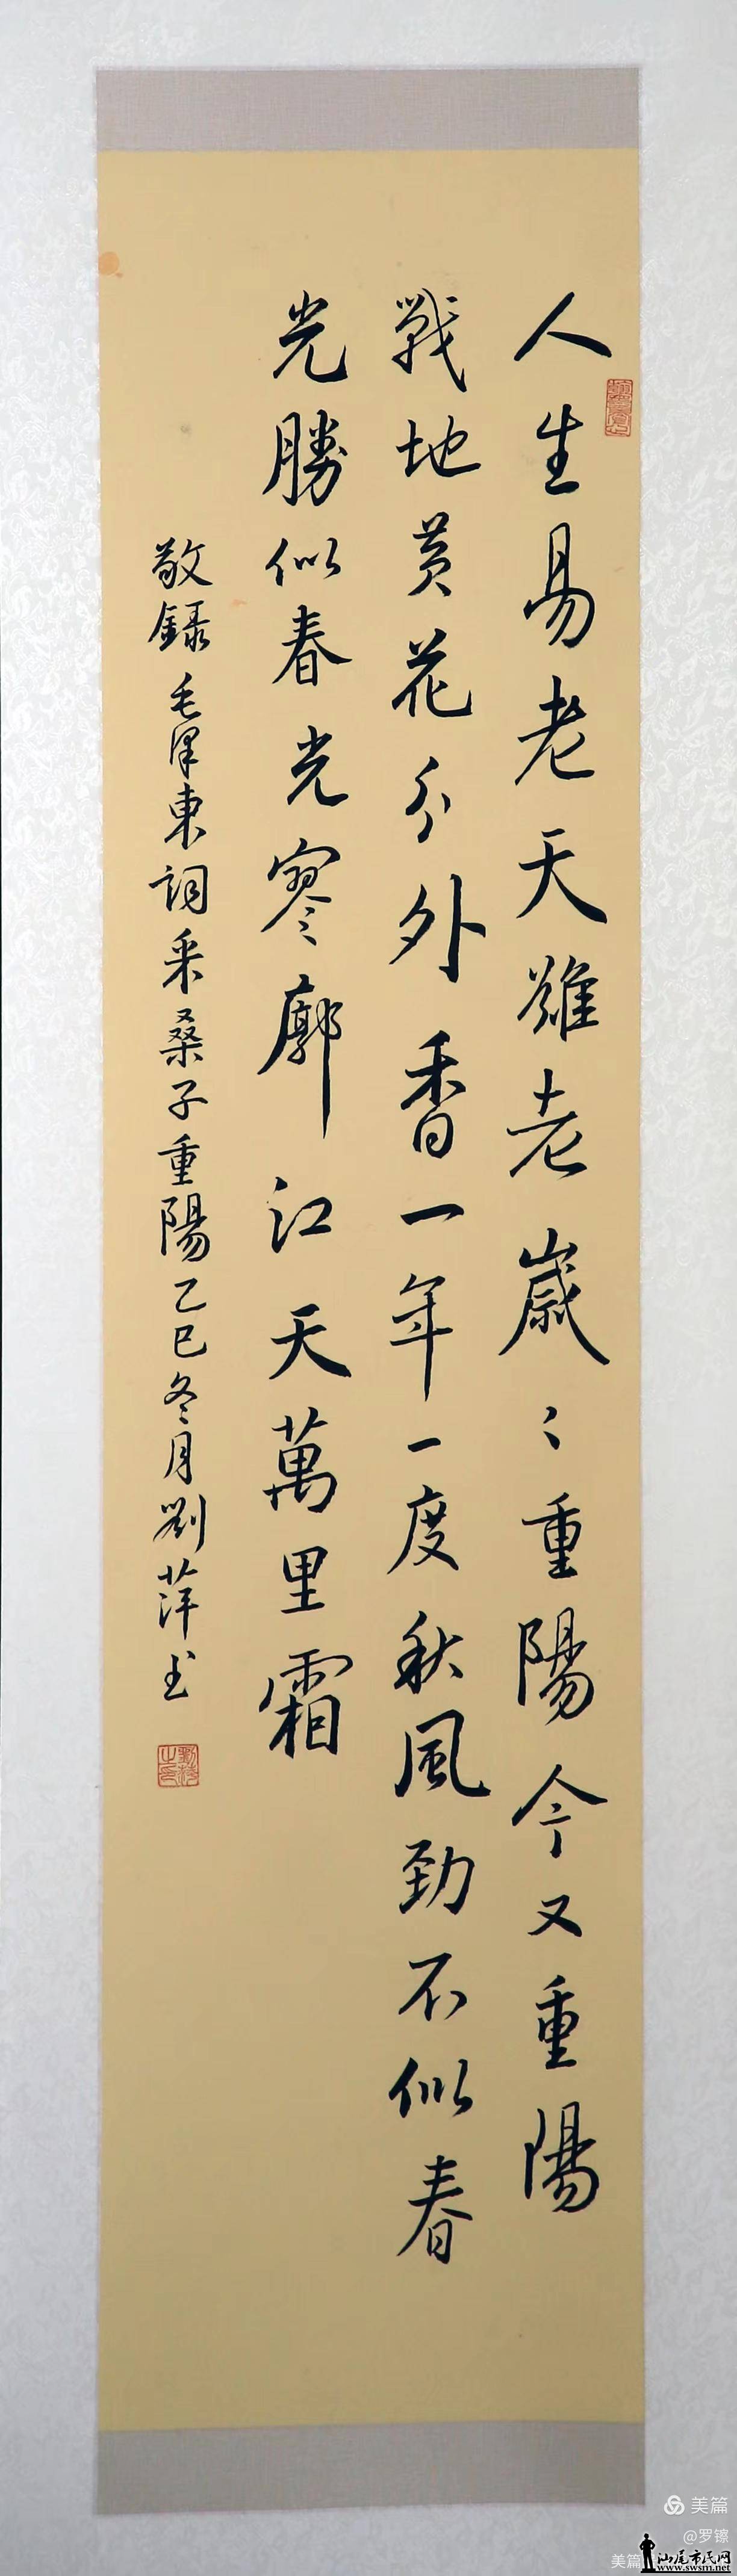 人生易老天難老歲〻重陽今又重陽
戰地黃花分外香一年一度秋風勁不似春
光勝似春光寥廓江天萬里霜
敬錄毛澤東詞采桑子重陽乙巳冬月劉萍书
劉萍之印
美篇
@罗镲
美篇
汕尾市民网
www.swsm.net